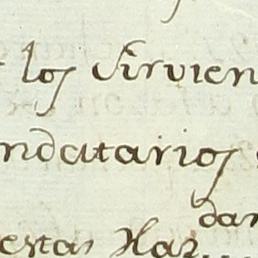 los Sirvien
ndatarios
dar
estas Haz